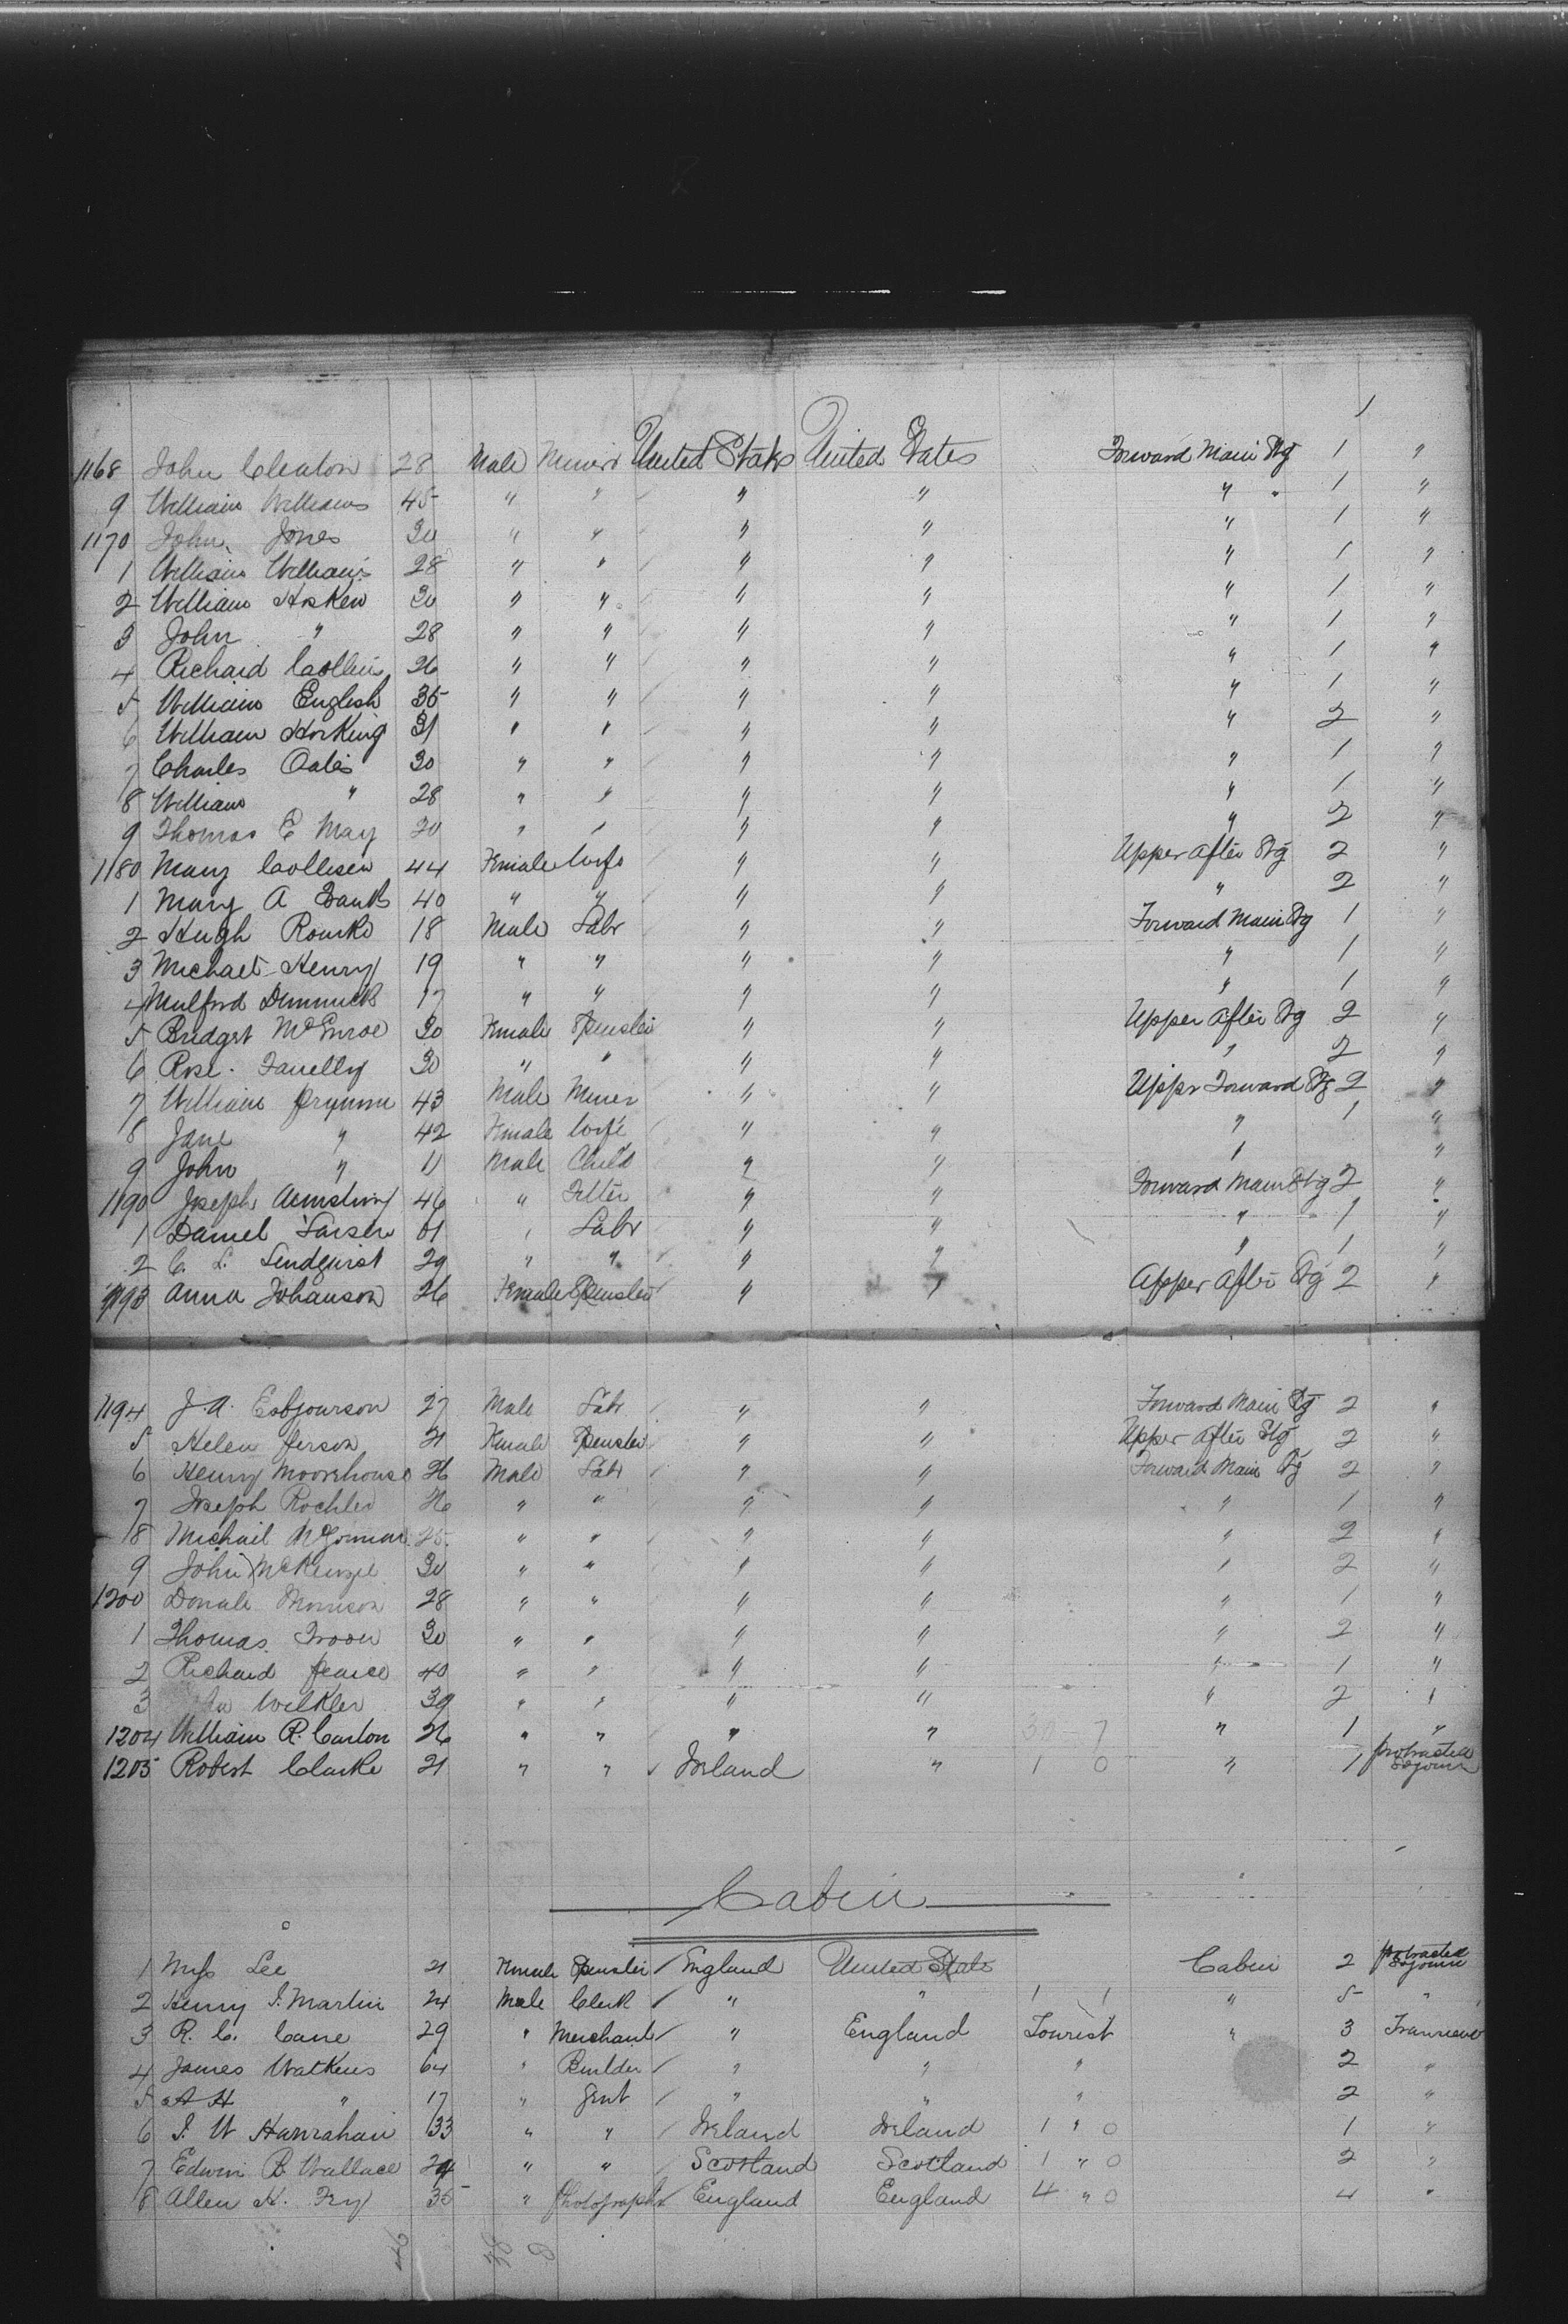 1
1168 John Clenton 28 Male Miners United States United States Forward Main Stg 1 "
9 William Williams 45 " " " " " 1 "
1170 John Jones 30 " " " " " 1 "
1 William Williams 28 " " " " " 1 "
2 William Hosken 30 " " " " " 1 "
3 John " 28 " " " " " 1 "
4 Richard Collins 26 " " " " " 1 "
5 William English 35 " " " " " 1 "
6 William Hosking 31 " " " " " 2 "
7 Charles Oates 30 " " " " " 1 "
8 William " 28 " " " " " 1 "
9 Thomas E May 20 " " " " " 2 "
1180 Mary 44 Female Wife " " Upper After Stg 2 "
1 Mary A 40 " " " " " 2 "
2 Hugh Rourke 18 Male Labr " " Forward Main Stg 1 "
3 Michael Henry 19 " " " " " 1 "
4 Mulford Dimmick 17 " " " " " 1 "
5 Bridget McEnroe 30 Female Spinster " " Upper After Stg 2 "
6 Rose Farrelly 30 " " " " " 2 "
7 William Prynnn 43 Male Miner " " Upper Forward Stg 2 "
8 Jane " 42 Female Wife " " " 1 "
9 John " 11 Male Child " " " "
1190 Joseph Armstrong 46 " Fitter " " Forward Main Stg 2 "
1 Daniel Larsen 61 " Labr " " " 1 "
2 C. L. Lindquist 29 " " " " " 1 "
1193 Anna Johanson 26 Female Spinster " " Upper After Stg 2 "
1194 J. A. Esbjournson 27 Male Labr " " Forward Main Stg 2 "
5 Helen Person 21 Female Spinster " " Upper After Stg 2 "
6 Henry Moorehouse 26 Male Labr " " Forward Main Stg 2 "
7 Joseph Rochler 26 " " " " " 1 "
8 Michail McGorman 25 " " " " " 2 "
9 John McKenzie 30 " " " " " 2 "
1200 Donale Morrison 28 " " " " " 1 "
1 Thomas Troon 30 " " " " " 2 "
2 Richard Pearce 40 " " " " " 1 "
3 Welkler 39 " " " " " 2 "
1204 William R. Carlton 26 " " " " 30 - 7 " 1 "
1205 Robert Clarke 21 " " Ireland " 1 0 " 1 protracted Sojourn
Cabin
1 Miss Lee 21 Female Spinster England United States Cabin 2 protracted Sojourn
2 Henry J. Martin 24 Male Clerk " " 1 1 " 5 "
3 R. C. Cane 29 " Merchant " England Tourist " 3 Transient
4 James Watkins 64 " Builder " " " 2 "
5 A H " 17 " Gent " " " 2 "
6 J. W Hanrahan 33 " " Ireland Ireland 1 " 0 1 "
7 Edwin B Wallace 24 " " Scotland Scotland 1 " 0 2 "
8 Allen H. Fry 35 " Photographer England England 4 " 0 4 "